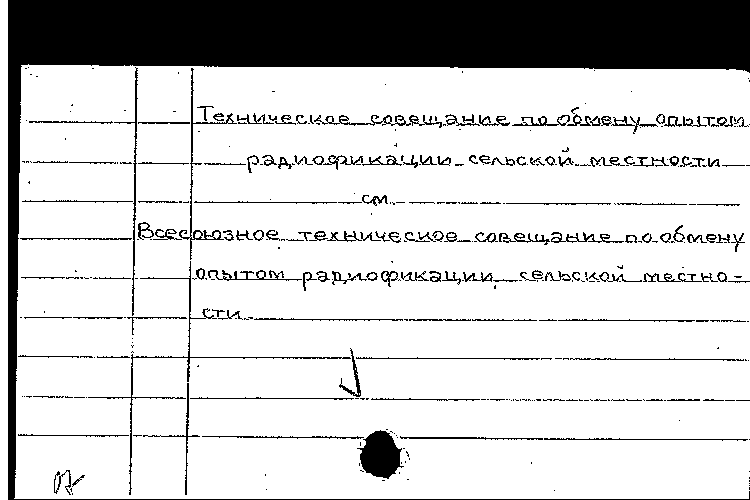 Техническое совещание по обмену опытом
радиофикации сельской местности
см.
Всесоюзное техническое совещание по обмену
опытом радиофикации сельской местно-
сти.